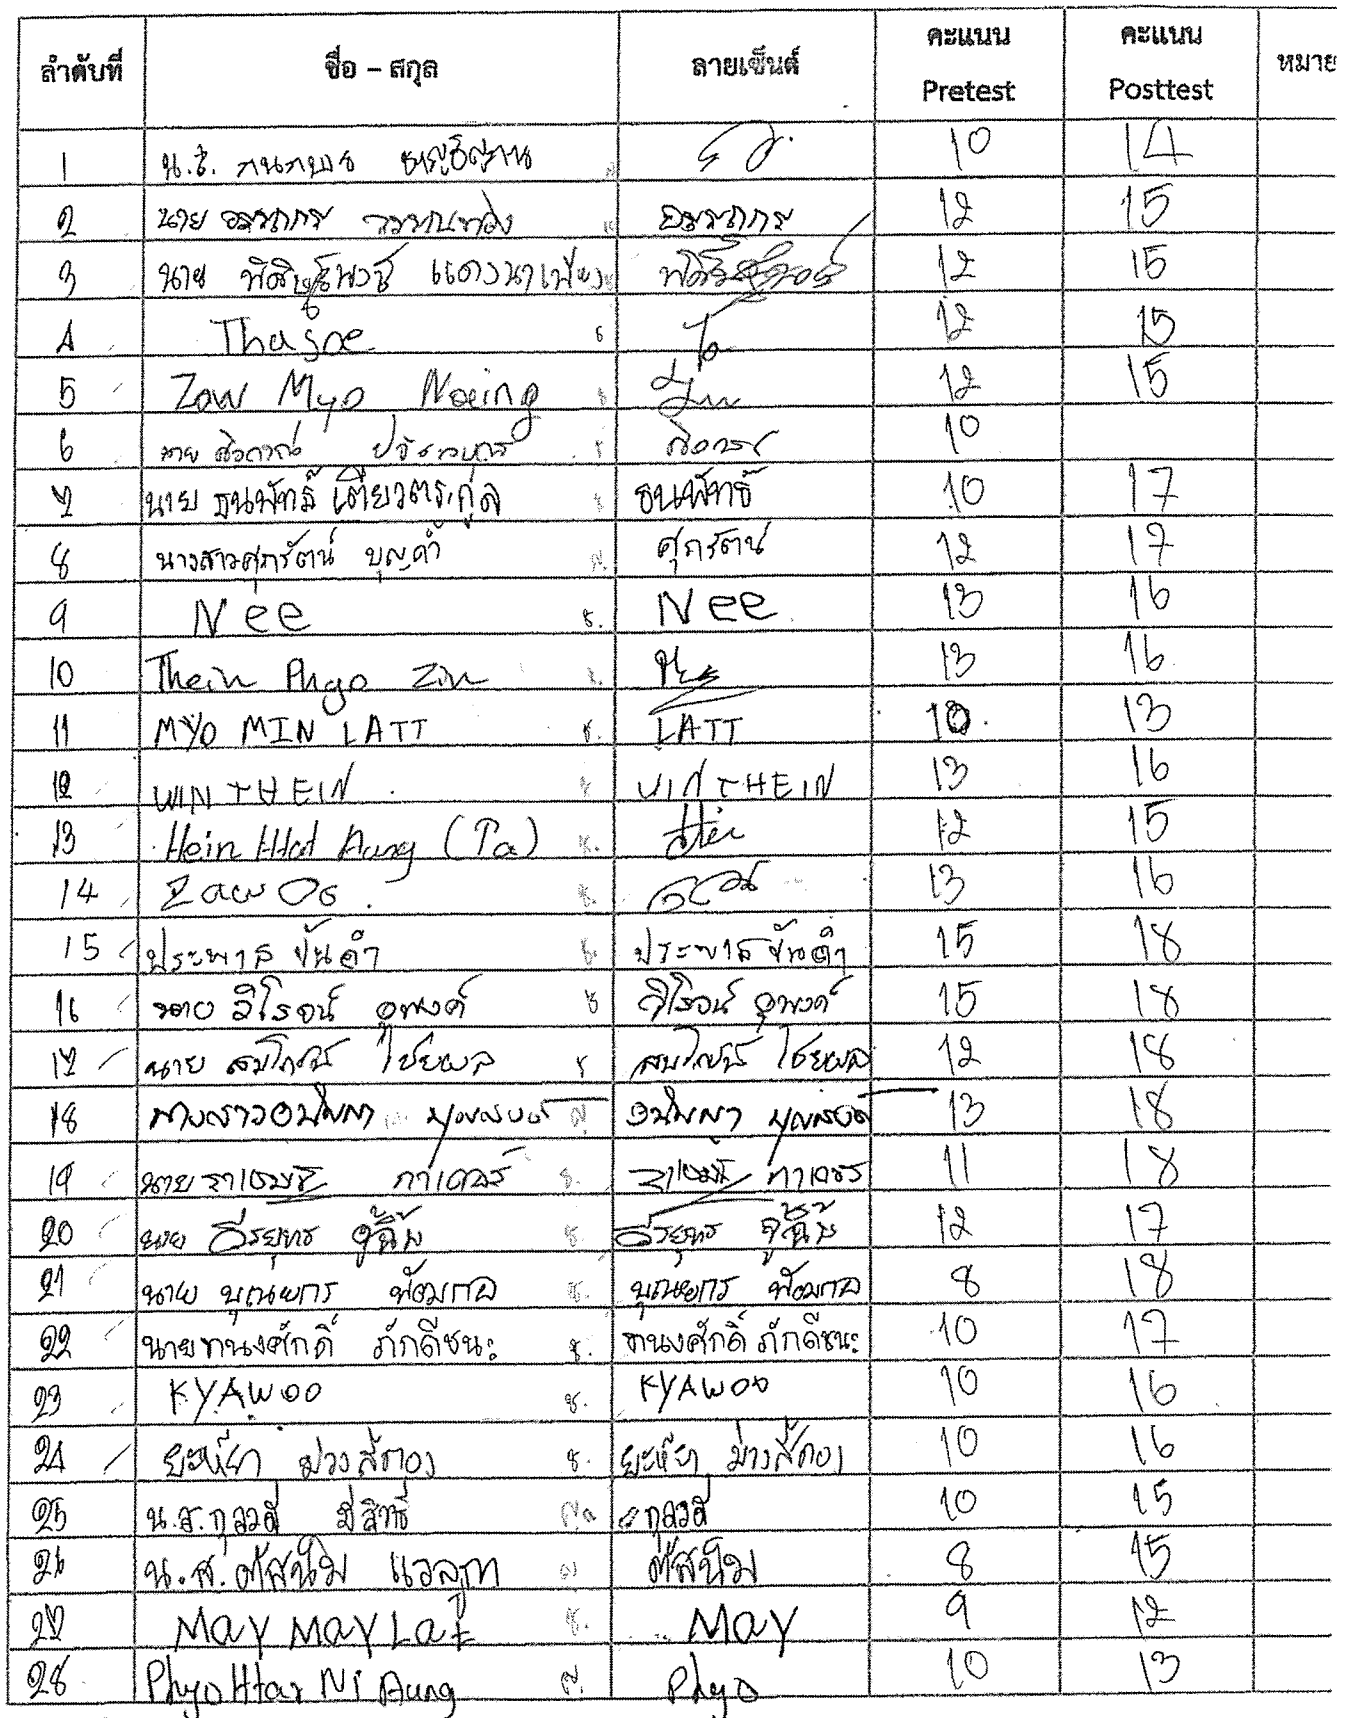 ลำดับที่ ชื่อ – สกุล ลายเซ็นต์ คะแนน Pretest คะแนน Posttest หมาย
1 น.ส. 10 14
2 นาย อรรถกร อรรถกร 12 15
3 นาย พิสิษฐ์พงษ์ แดงนาเพียง 12 15
4 Thasoe 12 15
5 Zaw Myo Naing 12 15
6 นาย 10
7 นาย ธนพัทธ์ เตียวตระกูล ธนพัทธ์ 10 17
8 นางสาวศุภรัตน์ บุญคำ ศุภรัตน์ 12 17
9 Nee ช. Nee 13 16
10 Thein Phyo Zin 13 16
11 MYO MIN LATT ช. LATT 10 13
12 WIN THEIN WIN THEIN 13 16
13 Hein Htat Aung (Pa) ช. Hein 12 15
14 Zaw Oo ช. 13 16
15 ประพาส ขันคำ ช. ประพาส ขันคำ 15 18
16 นาย วิโรจน์ อุพงค์ ช วิโรจน์ อุพงค์ 15 18
17 นาย สมโภชน์ ไชยผล ช สมโภชน์ ไชยผล 12 18
18 นางสาวอนันตา ญ อนันตา 13 18
19 นาย ช. 11 18
20 นาย ธีรยุทธ ช. ธีรยุทธ 12 17
21 นาย บุณยกร ช. บุณยกร 8 18
22 นายทนงศักดิ์ ภักดีชนะ ช. ทนงศักดิ์ ภักดีชนะ 10 17
23 KYAWOO ช. KYAWOO 10 16
24 ยะห์ยา ม่วงสีทอง ช. ยะห์ยา ม่วงสีทอง 10 16
25 น.ส. กุลวดี มีสิทธิ์ ญ. กุลวดี 10 15
26 น.ส. ตัสนีม แวลฎา ญ ตัสนีม 8 15
27 May May Lat ช. May 9 12
28 Phyo Htar Ni Aung ญ. Phyo 10 13